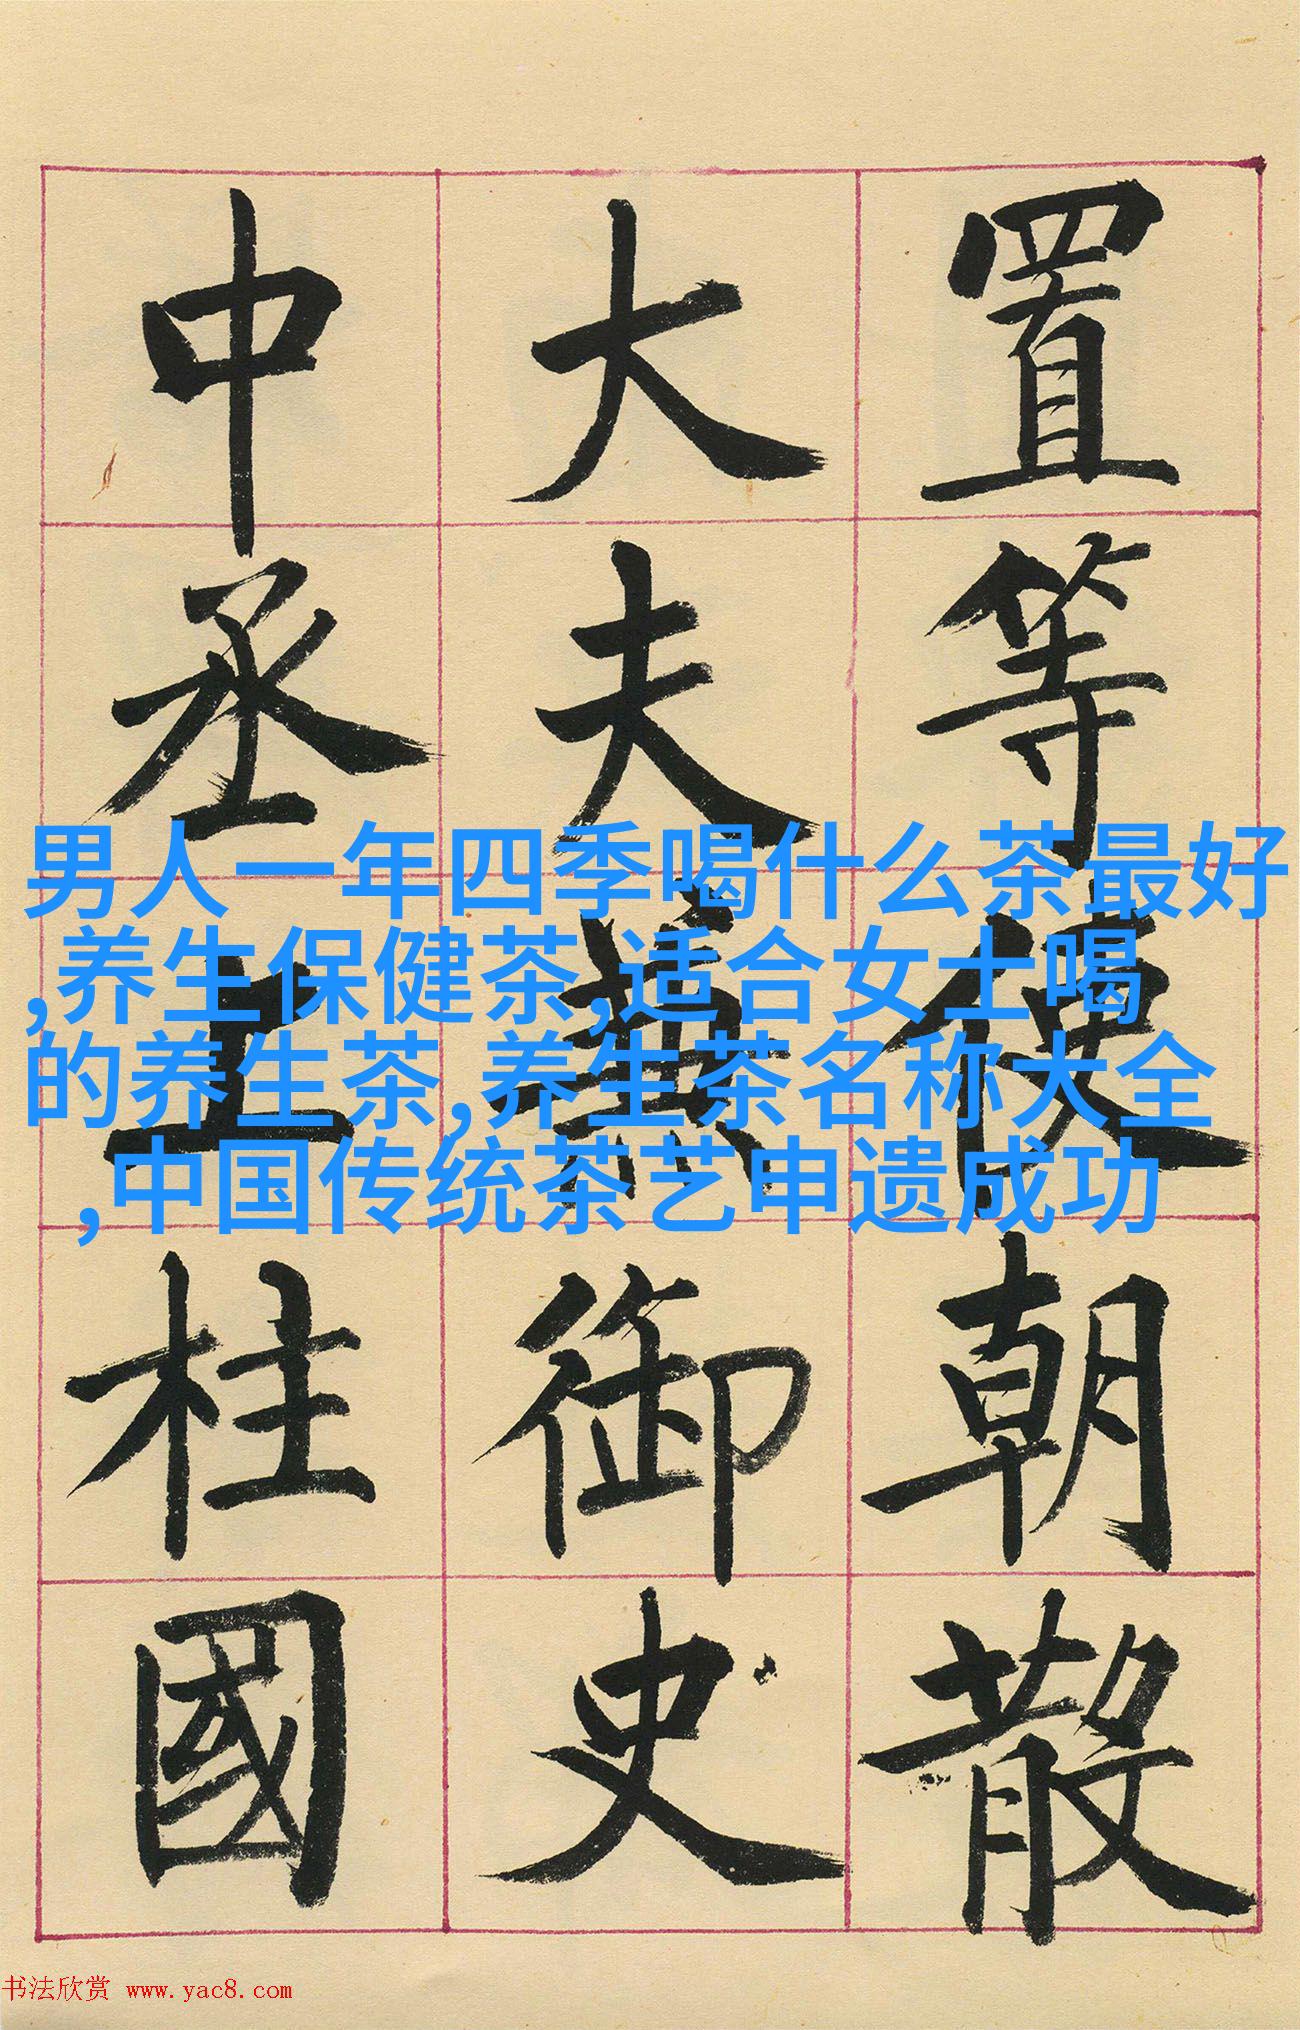 置等使朝散
大夫兼御史
中丞上柱國
男人一年四季喝什么茶最好
,养生保健茶,适合女士喝
的养生茶,养生茶名称大全
,中国传统茶艺申遗成功
书法欣赏 www.yac8.com